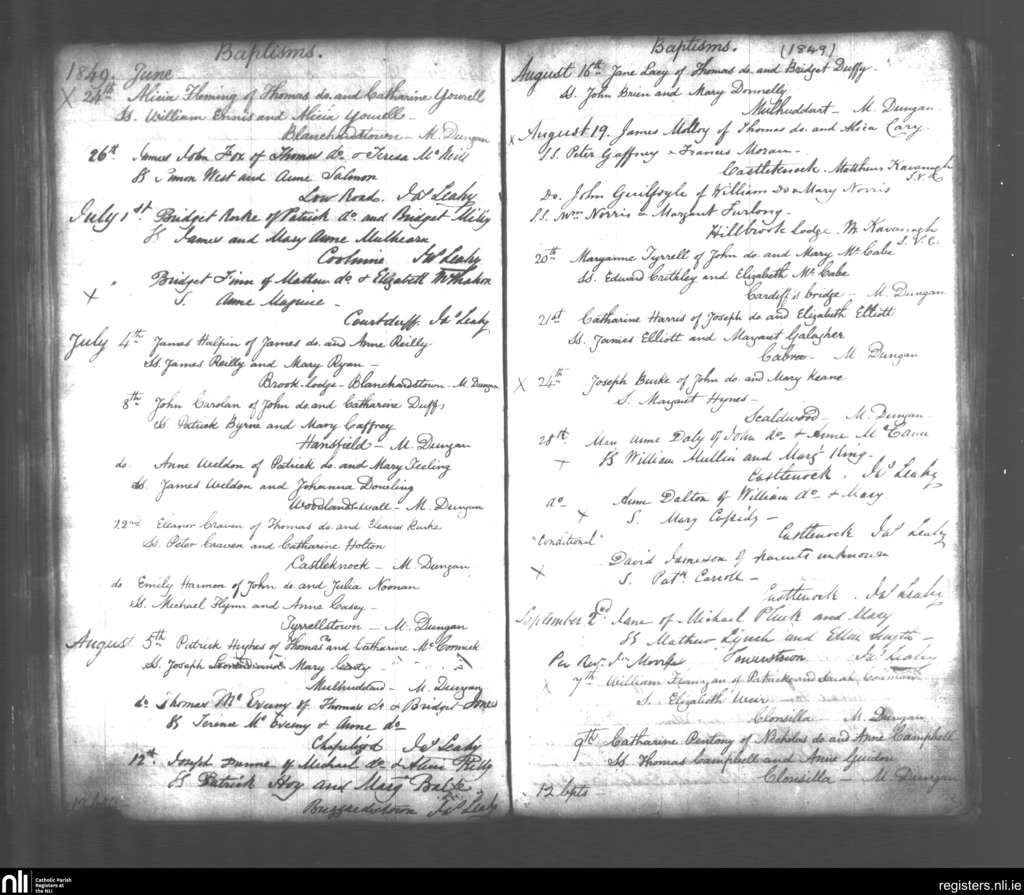 Baptisms.
1849. June
X 24th Alicia Fleming of Thomas do. and Catharine Yowell
Ss. William Ennis and Alicia Yowell -
Blanchardstown - M. Dungan
26th James John Fox of Thomas do & Teresa McNeill
SS Simon West and Anne Salmon
Low Road. Jas Leahy
July 1st Bridget Rorke of Patrick do. and Bridget
SS James and Mary Anne Mulhearn
Coolmine Jas Leahy
" Bridget Finn of Mathew do & Elizabeth McMahon
X S. Anne Maguire -
Courtduff. Jas Leahy
July 4th James Halpin of James do. and Anne Reilly
SS James Reilly and Mary Ryan -
Brook-lodge - Blanchardstown - M. Dungan
8th John Carolan of John do. and Catharine Duffy
Ss. Patrick Byrne and Mary Caffrey
Hansfield - M. Dungan
do. Anne Weldon of Patrick do. and Mary Teeling
Ss. James Weldon and Johanna Dowling
Woodlands-wall - M. Dungan
22nd Eleanor Craven of Thomas do. and Eleanor Burke
Ss. Peter Craven and Catharine Holton
Castleknock - M. Dungan
do Emily Harmon of John do and Julia Noonan
Ss. Michael Flynn and Anne Casey -
Tyrrellstown - M. Dungan
August 5th Patrick Hughes of Thomas and Catharine McCormick
Ss. Joseph and Mary
Mulhuddard - M. Dungan
do Thomas McEveny of Thomas do & Bridget Jones
SS Terence McEveny & Anne do
Chapelizod Jas Leahy
12th Joseph Dunne of Michael do & Alice Reilly
SS Patrick Hoy and Marg
Buzzardstown Jas Leahy
Baptisms. (1849)
August 16th Jane Lacy of Thomas do. and Bridget Duffy.
Ss. John Brien and Mary Donnelly
Mulhuddart - M. Dungan
x August 19. James Molloy of Thomas do. and Alicia Cary.
S.S. Peter Gaffney & Frances Moran -
Castleknock. Matthew Kavanagh
Do. John Guilfoyle of William Do & Mary Norris
S.S. Wm Norris & Margaret Furlong -
Hillbrook Lodge. M Kavanagh
20th Maryanne Tyrrell of John do. and Mary McCabe
Ss. Edward Critchley and Elizabeth McCabe
Cardiff's bridge - M. Dungan
21st Catharine Harris of Joseph do and Elizabeth Elliott
Ss. James Elliott and Margaret Galagher
Cabra - M Dungan
X 24th Joseph Burke of John do. and Mary Keane
S. Margaret Hynes -
Scaldwood - M. Dungan
28th. Mary Anne Daly of John do. & Anne McCann
+ SS William Mullin and Margt King -
Castlenock. Jas Leahy
do Anne Dalton of William do & Mary
x S. Mary Casidy -
Castlenock Jas Leahy
"Conditional"
David Jameson of parents unknown
X S. Patk Carroll -
Castlenock. Jas Leahy
September 2nd Jane of Michael Pluck and Mary
SS Mathew Lynch and Ellen Smyth -
Per Revd Jn Jas Leahy
x 7th William Flanagan of Patrick and Sarah
S. Elizabeth Weir -
Clonsilla - M. Dungan
9th Catharine Pentony of Nicholas do and Anne Campbell
Ss Thomas Campbell and Anne
Clonsilla - M Dungan
12 bpts
nli
Catholic Parish
Registers at
the NLI
registers.nli.ie